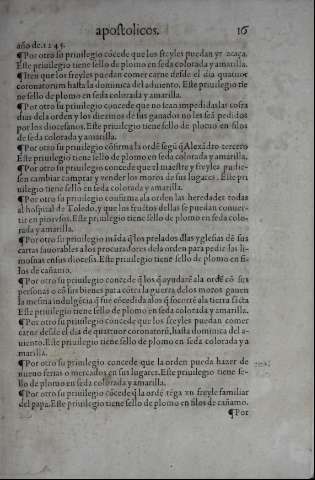 apostolicos. 16
año de.1245.
¶Por otro su priuilegio cõcede que los freyles puedan yr a caça.
Este priuilegio tiene sello de plomo en seda colorada y amarilla.
¶Itẽ en que los freyles puedan comer carne desde el dia quatuor
coronatorum hasta la dominica del aduiento. Este priuilegio tie
ne sello de plomo en seda colorada y amarilla.
¶Por otro su priuilegio concede que no sean impedidas las cofra
dias dela orden y los diezmos de sus ganados no les seã pedidos
por los diocesanos. Este priuilegio tiene sello de plomo en filos
de seda colorada y amarilla.
¶Por otro su priuilegio cõfirma la ordẽ segũ q̃ Alexãdro tercero
Este priuilegio tiene sello de plomo en seda colorada y amarilla.
¶Por otro su priuilegio concede que el maestre y freyles pudies
sen cambiar comprar y vender los moros de sus lugares. Este pri
uilegio tiene sello en seda colorada y amarilla.
¶Por otro su priuilegio confirma ala orden las heredades todas
al hospital de Toledo, y que los fructos dellas se puedan conuer
tir en piovsos. Este priuilegio tiene sello de plomo en seda colo-
rada y amarilla.
¶Por otro su priuilegio mãda q̃ los prelados dlas yglesias dẽ sus
cartas fauorables a los procuradores dela orden para pedir las li-
mosnas en sus diocesis. Este priuilegio tiene sello de plomo en fi-
los de cañamo.
¶Por otro su priuilegio concede q̃ los q̃ ayudarẽ ala ordẽ cõ sus
personas o cõ sus bienes para cõtra la guerra delos moros ganen
la mesma indulgẽcia q̃ fue cõcedida alos q̃ socorrẽ ala tierra sãcta
Este priuilegio tiene sello de plomo en seda colorada y amarilla.
¶Por otro su priuilegio concede que los freyles puedan comer
carne desde el dia de quatuor coronatorũ, hasta dominica del a-
uiento. Este priuilegio tiene sello de plomo en seda colorada y a
marilla.
¶Por otro su priuilegio concede que la orden pueda hazer de
nueuo ferias o mercados en sus lugares. Este priuilegio tiene se-
llo de plomo en seda colorada y amarilla.
¶Por otro su priuilegio cõcede q̃ la ordẽ tẽga vn freyle familiar
del papa. Este priuilegio tiene sello de plomo en filos de cañamo.
¶Por